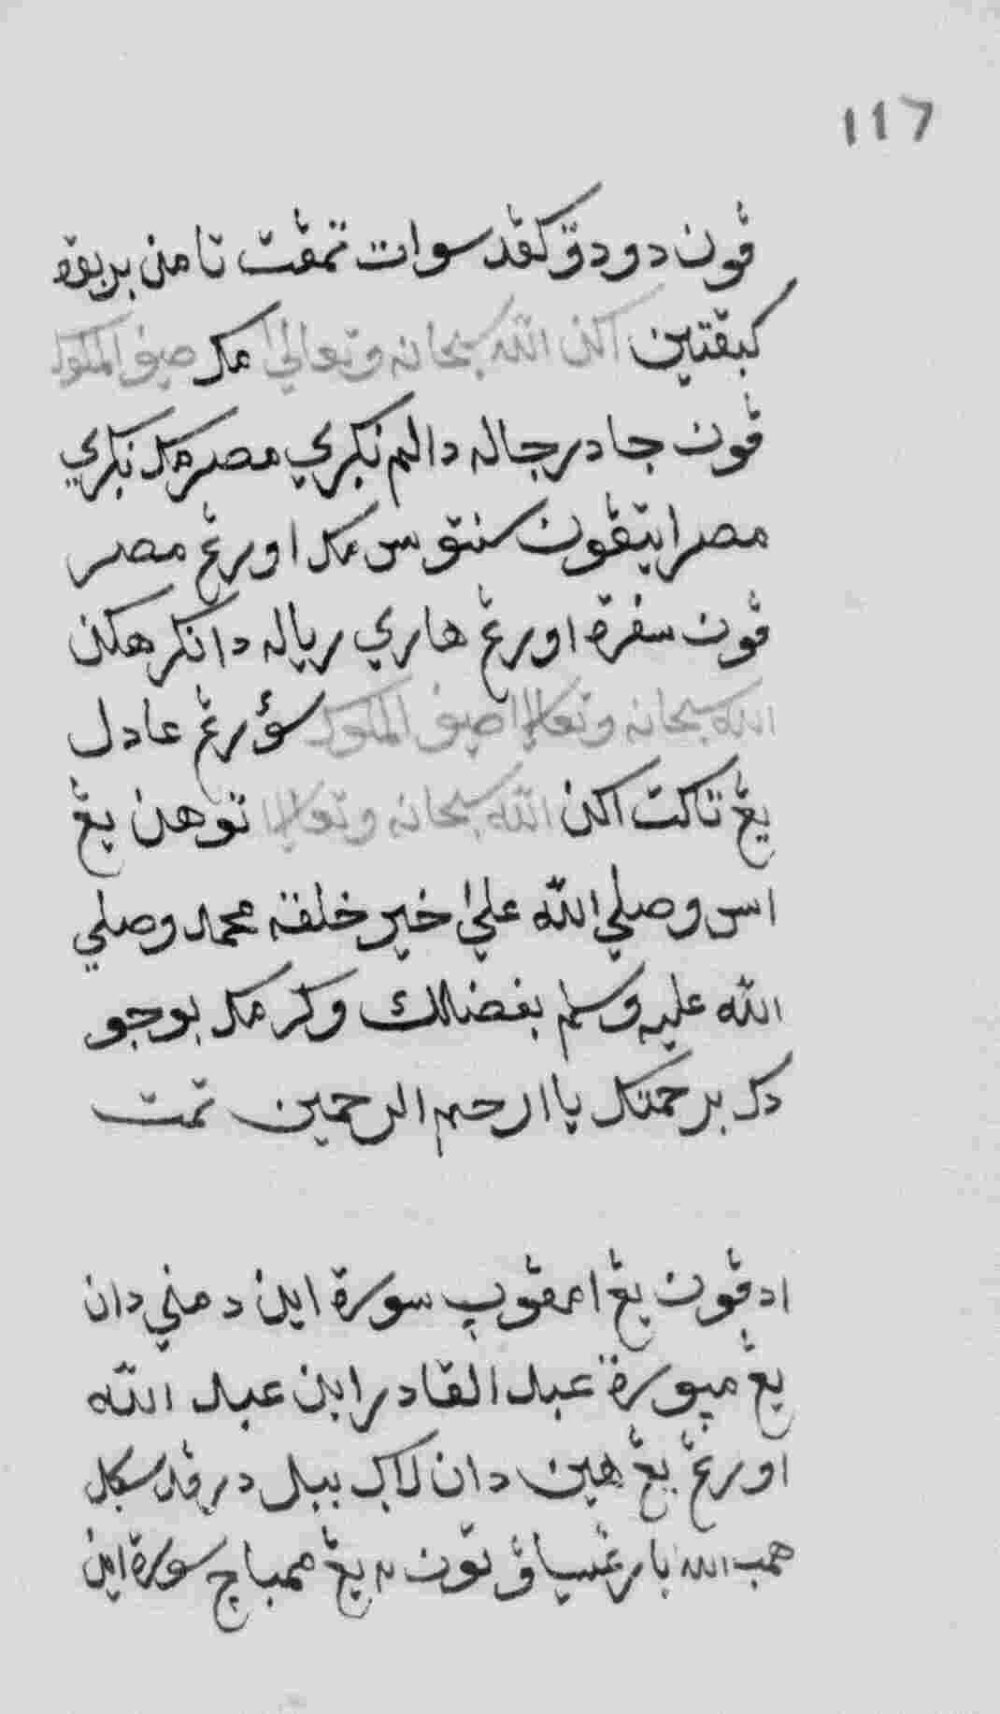 ١١٧
ڤون دودق كڤد سوات تمڤت تامن بربوت
كبقتين اكن الله سبحانه وتعالى مک صيف الملوک
ڤون جادر جاله دالم نكري مصر مک نكري
مصر ايتڤون سنتوس مک اورڠ مصر
ڤون سفرة اورڠ هاري رياله دانكرهكن
الله سبحانه وتعالى اصيف الملوک سؤرڠ عادل
يڠ تاكت اكن الله سبحانه وتعالى توهن يڠ
اس وصلي الله على خير خلقه محمد وصلي
الله عليه وسلم بفضلك وكرمک بوجو
دک برحمتک يا ارحم الرحمين تمت
ادڤون يڠ امڤوڽ سورة اين دمني دان
يڠ مڽورة عبد القادر ابن عبد الله
اورڠ يڠ هين دان لاک ببل درڤد سكل
همب الله بارڠسياڤ تون٢ يڠ ممباچ سورة اين